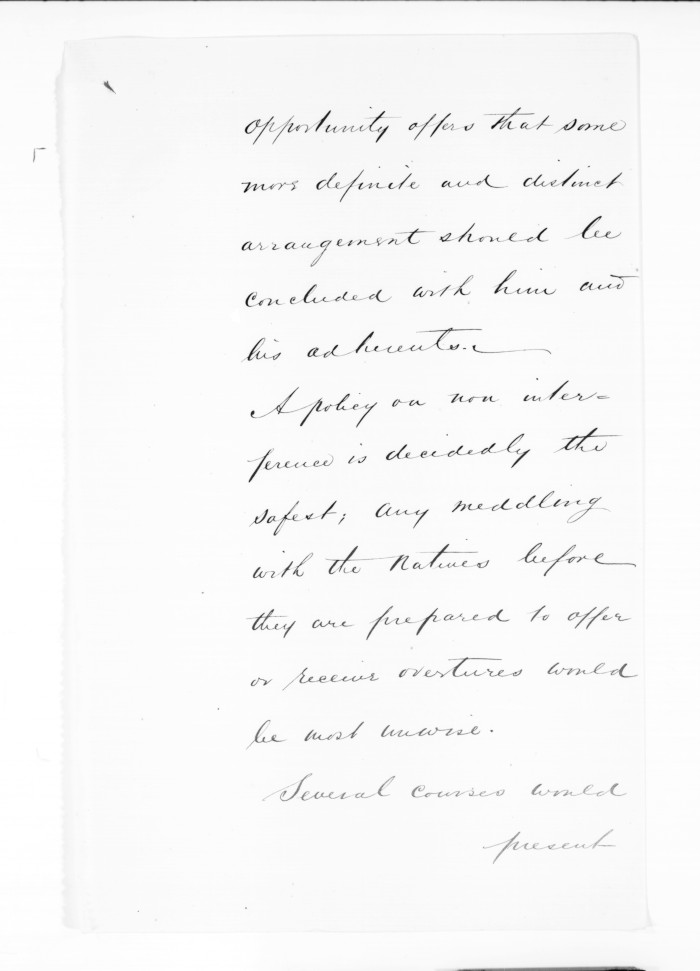 opportunity offers that some
more definite and distinct
arrangement should be
concluded with him and
his adherents.—
A policy on non inter=
ference is decidedly the
safest; any meddling
with the Natives before
they are prepared to offer
or receive overtures would
be most unwise.
Several courses would
present